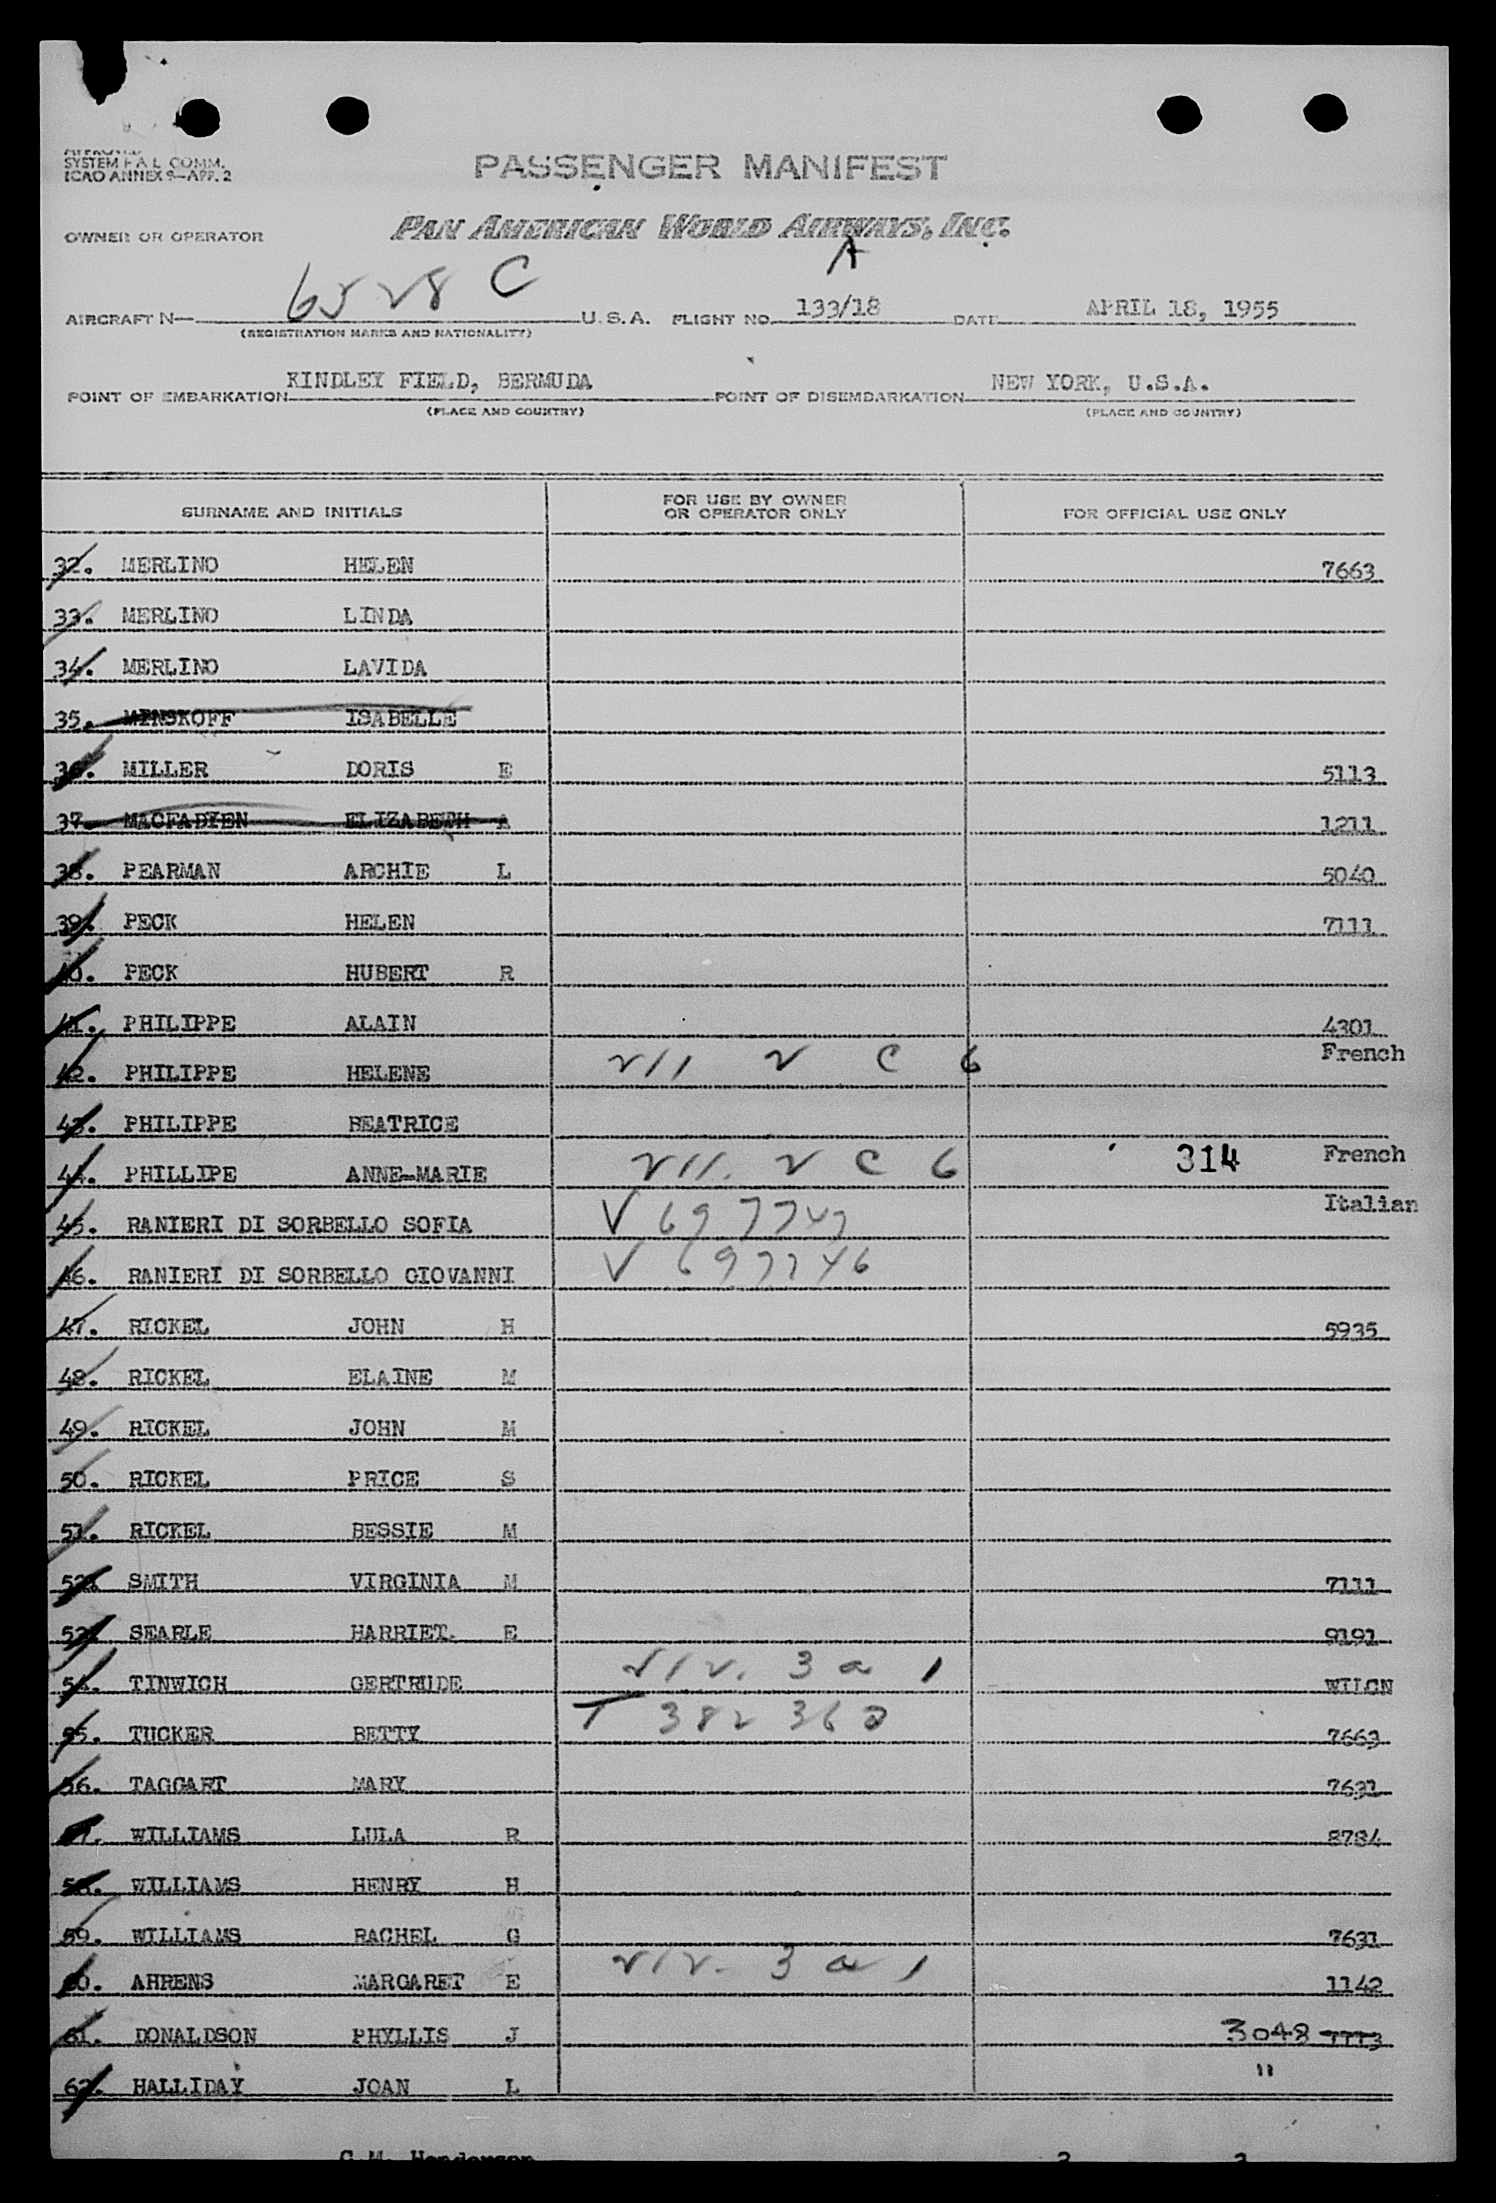 SYSTEM F A L COMM.
ICAO ANNEX 9—APP. 2
PASSENGER MANIFEST
OWNER OR OPERATOR PAN AMERICAN WORLD AIRWAYS, INC.
A
AIRCRAFT N— 6528 C U.S.A. FLIGHT NO. 133/18 DATE APRIL 18, 1955
(REGISTRATION MARKS AND NATIONALITY)
POINT OF EMBARKATION KINDLEY FIELD, BERMUDA POINT OF DISEMBARKATION NEW YORK, U.S.A.
(PLACE AND COUNTRY) (PLACE AND COUNTRY)
SURNAME AND INITIALS FOR USE BY OWNER OR OPERATOR ONLY FOR OFFICIAL USE ONLY
32. MERLINO HELEN 7663
33. MERLINO LINDA
34. MERLINO LAVIDA
35. MINSKOFF ISABELLE
36. MILLER DORIS E 5113
37. MACFADYEN ELIZABETH A 1211
38. PEARMAN ARCHIE L 5040
39. PECK HELEN 7111
40. PECK HUBERT R
41. PHILIPPE ALAIN 4301
42. PHILIPPE HELENE V11 V C 6 French
43. PHILIPPE BEATRICE
44. PHILLIPE ANNE-MARIE V11. V C 6 314 French
45. RANIERI DI SORBELLO SOFIA V 697747 Italian
46. RANIERI DI SORBELLO GIOVANNI V 697746
47. RICKEL JOHN H 5935
48. RICKEL ELAINE M
49. RICKEL JOHN M
50. RICKEL PRICE S
51. RICKEL BESSIE M
52. SMITH VIRGINIA M 7111
53. SEARLE HARRIET. E 9191
54. TINWICH GERTRUDE V1V. 3 a 1 WILCN
55. TUCKER BETTY T 382362 7663
56. TAGGART MARY 7631
57. WILLIAMS LULA R 8784
58. WILLIAMS HENRY H
59. WILLIAMS RACHEL G 7631
60. AHRENS MARGARET E V1V. 3 a 1 1142
61. DONALDSON PHYLLIS J 3048 7773
62. HALLIDAY JOAN L "
C.M. Henderson